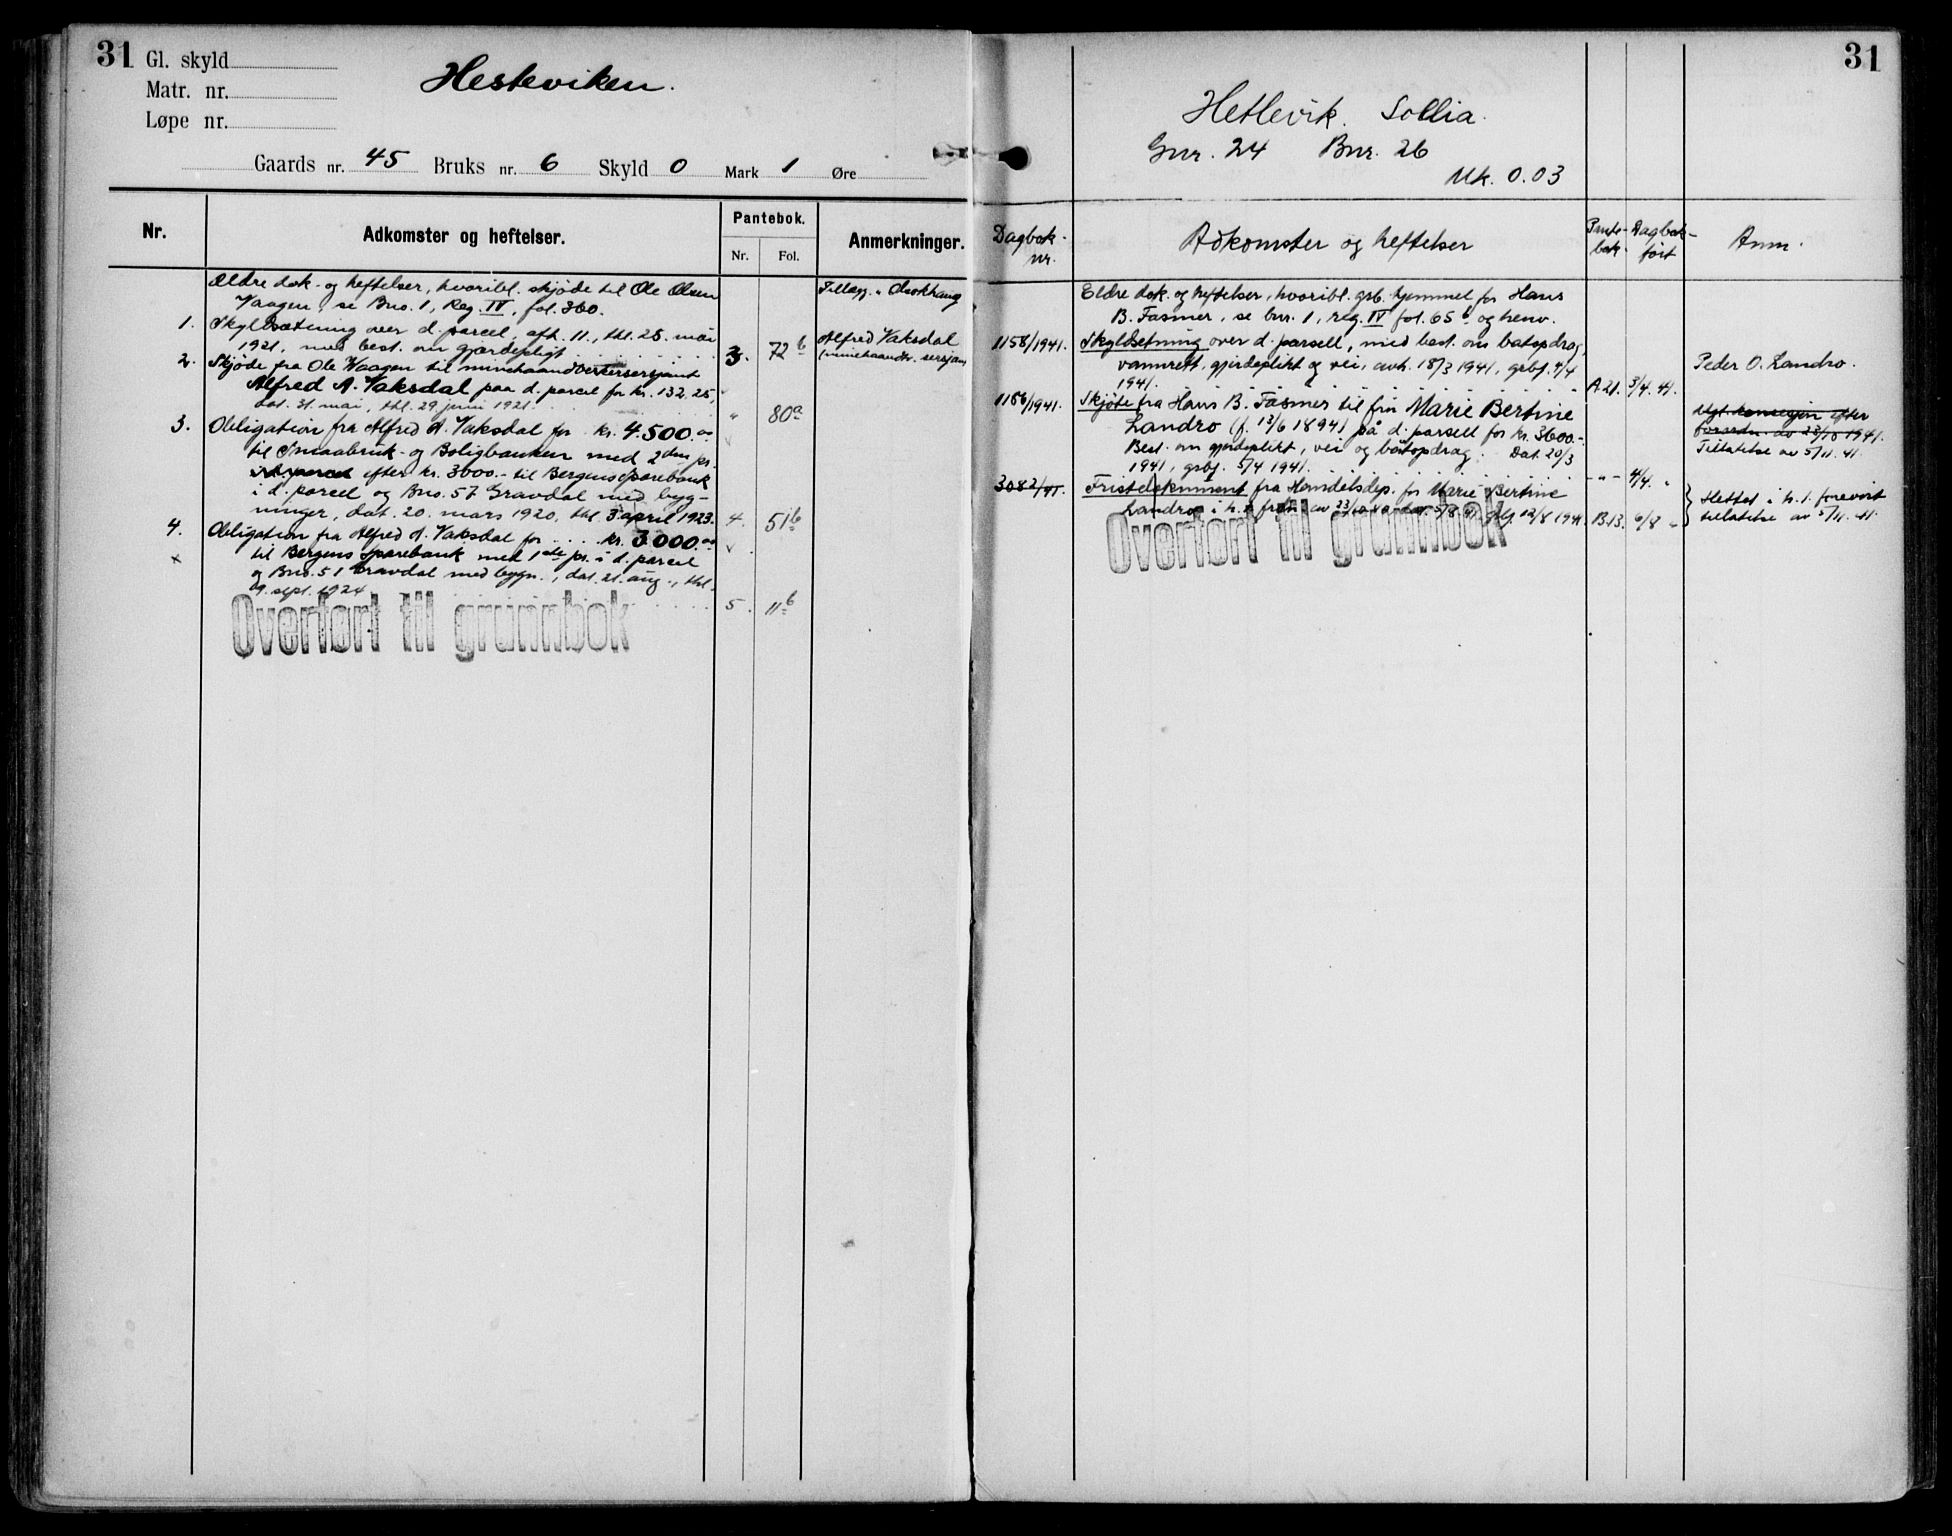 31
Gl. skyld
Matr. nr.
Løpe nr.
Hesteviken.
Gaards nr. 45 Bruks nr. 6 Skyld 0 Mark 1 Øre
Nr.
Adkomster og heftelser.
Pantebok.
Nr. Fol.
Anmerkninger.
Ældre dok- og heftelser, hvoribl. skjøde til Ole Olsen
Vaagen, se Bno. 1, Reg. IV, fol. 360.
Tillegg
1. Skyldsætning over d. parcel, afh. 11., thl. 25. mai
1921, med best. om gjærdepligt 3. 72b
Alfred Vaksdal
2. Skjøde fra Ole Waagen til minehaandverkersersjant
Alfred A. Vaksdal paa d. parcel for kr. 132,25,
dat. 31. mai, thl. 29 juni 1921. " 80a
3. Obligation fra Alfred A. Vaksdal for kr. 4.500.00
til Smaabruk- og Boligbanken med 2den pr.
efter kr. 3000.- til Bergens Sparebank
i d. parcel og Bno. 57 Gravdal med byg-
ninger, dat. 20. mars 1920, thl. 3 april 1923. 4. 51b
4. Obligation fra Alfred A. Vaksdal for .... kr. 3000.00
til Bergens Sparebank med 1ste pr. i d. parcel
og Bno. 51 Gravdal med bygn., dat. 21. aug., thl.
09. sept. 1924 5. 11b
Overført til grunnbok
31
Hetlevik. Sollia.
Gnr. 24 Bnr. 26
Mk. 0.03
Dagbok-
nr.
Adkomster og heftelser
Pante-
bok.
Dagbok-
ført
Anm.
Eldre dok. og heftelser, hvoribl. grb. hjemmel for Hans
B. Fasmer, se bnr. 1, reg. IV fol. 65b og henv.
1158/1941. Skyldsetning over d. parsell, med best. om båtopdrag,
vannrett, gjerdeplikt og vei, avh. 18/3 1941, grbf. 4/4
1941. A.21. 3/4. 41.
Peder O. Landro.
1156/1941. Skjøte fra Hans B. Fasmer til fru Marie Bertine
Landro (f. 13/6 1894) på d. parsell for kr. 3600.-
Best. om gjerdeplikt, vei og båtopdrag. Dat. 20/3
1941, grbf. 5/4 1941. -"- 4/4. "
Ugt. konsesjon efter
forordn. av 23/10 1941.
Tillatelse av 5/11. 41.
3082/41. Fristdokument fra Handelsdep. for Marie Bertine
Landro i h. t. av 23/10 40, dat. 5/8. 41. grbf. 12/8 1941. B.13. 6/8 "
Slettet i h. t. forevist
tillatelse av 5/11. 41.
Overført til grunnbok